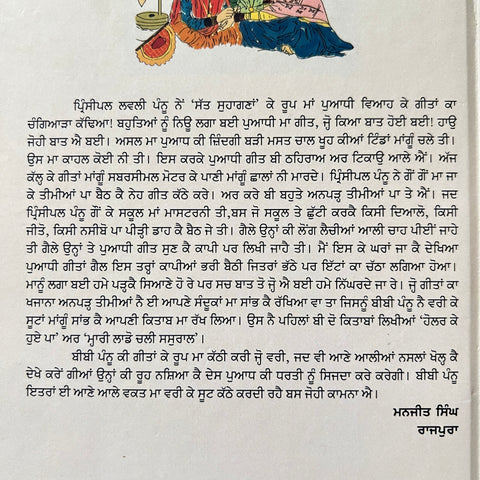 ਪ੍ਰਿੰਸੀਪਲ ਲਵਲੀ ਪੰਨੂ ਨੇਂ ‘ਸੱਤ ਸੁਹਾਗਣਾਂ’ ਕੇ ਰੂਪ ਮਾਂ ਪੁਆਧੀ ਵਿਆਹ ਕੇ ਗੀਤਾਂ ਕਾ
ਚੰਗਿਆੜਾ ਕੱਢਿਆ! ਬਹੁਤਿਆਂ ਨੂੰ ਨਿਊ ਲਗਾ ਬਈ ਪੁਆਧੀ ਮਾ ਗੀਤ, ਜੋ ਕਿਆ ਬਾਤ ਹੋਈ ਬਈ! ਹਾਉ
ਜੋਹੀ ਬਾਤ ਐ ਬਈ। ਅਸਲ ਮਾ ਪੁਆਧ ਕੀ ਜ਼ਿੰਦਗੀ ਬੜੀ ਮਸਤ ਚਾਲ ਖੂਹ ਕੀਆਂ ਟਿੰਡਾਂ ਮਾਂਗੂੰ ਚਲੇ ਤੀ।
ਉਸ ਮਾ ਕਾਹਲ ਕੋਈ ਨੀ ਤੀ। ਇਸ ਕਰਕੇ ਪੁਆਧੀ ਗੀਤ ਬੀ ਠਹਿਰਾਅ ਅਰ ਟਿਕਾਊ ਆਲੇ ਐਂ। ਅੱਜ
ਕੱਲ੍ਹ ਕੇ ਗੀਤਾਂ ਮਾਂਗੂੰ ਸਬਰਸੀਮਲ ਮੋਟਰ ਕੇ ਪਾਣੀ ਮਾਂਗੂੰ ਛਾਲਾਂ ਨੀ ਮਾਰਦੇ। ਪ੍ਰਿੰਸੀਪਲ ਪੰਨੂ ਨੇ ਗੌਂ ਗੌਂ ਮਾ ਜਾ
ਕੇ ਤੀਮੀਆਂ ਪਾ ਬੈਠ ਕੈ ਨੇਹ ਗੀਤ ਕੱਠੇ ਕਰੇ। ਅਰ ਕਰੇ ਬੀ ਬਹੁਤੇ ਅਨਪੜ੍ਹ ਤੀਮੀਆਂ ਪਾ ਤੇ ਐਂ। ਜਦ
ਪ੍ਰਿੰਸੀਪਲ ਪੰਨੂੰ ਗੌਂ ਕੇ ਸਕੂਲ ਮਾਂ ਮਾਸਟਰਨੀ ਤੀ,ਬਸ ਜੋ ਸਕੂਲ ਤੇ ਛੁੱਟੀ ਕਰਕੈ ਕਿਸੀ ਦਿਆਲੋ, ਕਿਸੀ
ਜੀਤੋ, ਕਿਸੀ ਨਸੀਬੋ ਪਾ ਪੀੜ੍ਹੀ ਡਾਹ ਕੈ ਬੈਠ ਜੇ ਤੀ। ਗੈਲੇ ਉਨ੍ਹਾਂ ਕੀ ਲੋਂਗ ਲੈਚੀਆਂ ਆਲੀ ਚਾਹ ਪੀਈਂ ਜਾਹੇ
ਤੀ ਗੈਲੇ ਉਨ੍ਹਾਂ ਤੇ ਪੁਆਧੀ ਗੀਤ ਸੁਣ ਕੈ ਕਾਪੀ ਪਰ ਲਿਖੀ ਜਾਹੈ ਤੀ। ਮੈਂ ਇਸ ਕੇ ਘਰਾਂ ਜਾ ਕੈ ਦੇਖਿਆ
ਪੁਆਧੀ ਗੀਤਾਂ ਗੈਲ ਇਸ ਤਰ੍ਹਾਂ ਕਾਪੀਆਂ ਭਰੀ ਬੈਠੀ ਜਿਤਰਾਂ ਭੱਠੇ ਪਰ ਇੱਟਾਂ ਕਾ ਚੱਠਾ ਲਗਿਆ ਹੋਆ।
ਮਾਨੂੰ ਲਗਾ ਬਈ ਹਮੇ ਪੜ੍ਹਕੈ ਸਿਆਣੇ ਹੋ ਰੇ ਪਰ ਸਚ ਬਾਤ ਤੋ ਜੋ ਐ ਬਈ ਹਮੇ ਨਿੱਘਰਦੇ ਜਾ ਰੇ। ਜੋ ਗੀਤਾਂ ਕਾ
ਖਜਾਨਾ ਅਨਪੜ੍ਹ ਤੀਮੀਆਂ ਨੈ ਈ ਆਪਣੇ ਸੰਦੂਕਾਂ ਮਾ ਸਾਂਭ ਕੈ ਰੱਖਿਆ ਵਾ ਤਾ ਜਿਸਨੂੰ ਬੀਬੀ ਪੰਨੂ ਨੈ ਵਰੀ ਕੇ
ਸੂਟਾਂ ਮਾਂਗੂੰ ਸਾਂਭ ਕੈ ਆਪਣੀ ਕਿਤਾਬ ਮਾ ਰੱਖ ਲਿਆ। ਉਸ ਨੈ ਪਹਿਲਾਂ ਬੀ ਦੋ ਕਿਤਾਬਾਂ ਲਿਖੀਆਂ ‘ਹੋਲਰ ਕੇ
ਹੁਏ ਪਾ’ ਅਰ ‘ਮ੍ਹਾਰੀ ਲਾਡੋ ਚਲੀ ਸਸੁਰਾਲ’।
ਬੀਬੀ ਪੰਨੂ ਕੀ ਗੀਤਾਂ ਕੇ ਰੂਪ ਮਾ ਕੱਠੀ ਕਰੀ ਜੋ ਵਰੀ, ਜਦ ਵੀ ਆਣੇ ਆਲੀਆਂ ਨਸਲਾਂ ਖੋਲ੍ਹ ਕੈ
ਦੇਖੇ ਕਰੇਂ ਗੀਆਂ ਉਨ੍ਹਾਂ ਕੀ ਰੂਹ ਨਸ਼ਿਆ ਕੈ ਦੇਸ ਪੁਆਧ ਕੀ ਧਰਤੀ ਨੂੰ ਸਿਜਦਾ ਕਰੇ ਕਰੇਗੀ। ਬੀਬੀ ਪੰਨੂ
ਇਤਰਾਂ ਈ ਆਣੇ ਆਲੇ ਵਕਤ ਮਾ ਵਰੀ ਕੇ ਸੂਟ ਕੱਠੇ ਕਰਦੀ ਰਹੈ ਬਸ ਜੋਹੀ ਕਾਮਨਾ ਐ।
ਮਨਜੀਤ ਸਿੰਘ
ਰਾਜਪੁਰਾ